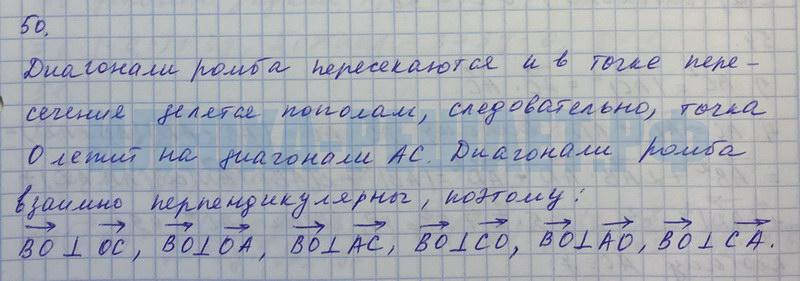 50.
Диагонали ромба пересекаются и в точке пере-
сечения делятся пополам, следовательно, точка
О лежит на диагонали АС. Диагонали ромба
взаимно перпендикулярны, поэтому:
→BO ⊥ →OC, →BO ⊥ →OA, →BO ⊥ →AC, →BO ⊥ →CO, →BO ⊥ →AO, →BO ⊥ →CA.